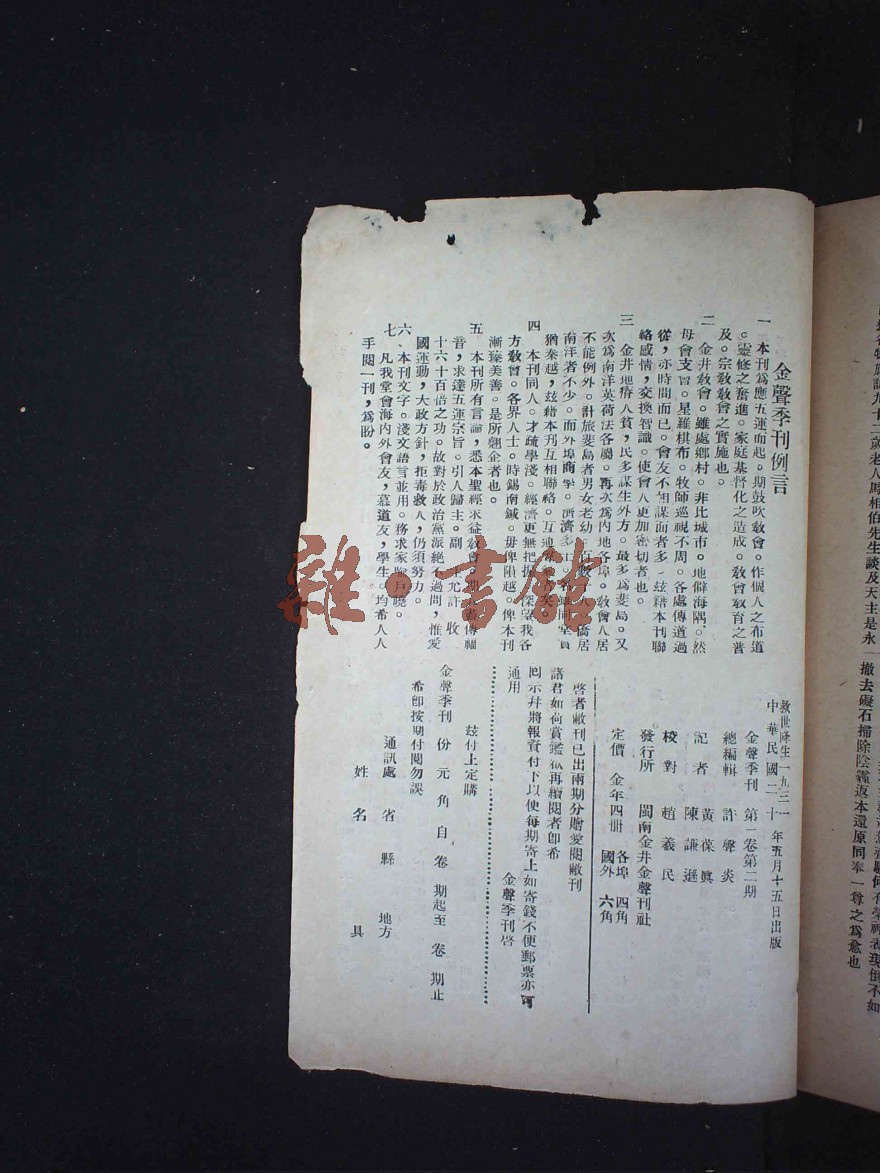 金聲季刊例言
一 本刊爲應五運而起。期鼓吹敎會。作個人之布道
。靈修之奮進。家庭基督化之造成。敎會敎育之普
及。宗敎敎會之實施也。
二 金井敎會。雖處鄉村。非比城市。地僻海隅。然
母會支會。星羅棋布。牧師巡視不周。各處傳道過
從,亦時間而已。會友不相謀面者多,玆藉本刊聯
絡感情,交換智識。使會人更加密切者也。
三 金井地瘠人貧,民多謀生外方。最多爲斐島。又
次爲南洋英荷法各屬。再次爲內地各埠。敎會人居
不能例外。計旅斐島者男女老幼 僑居
南洋者不少。而外埠商 濟濟多
猶秦越,玆藉本刊互相聯絡。互通
四 本刊同人。才疏學淺。經濟更無把握。深望我各
方敎會。各界人士。時錫南鍼。毋俾隕越。俾本刊
漸臻美善。是所翹企者也。
五 本刊所有言論,悉本聖經求益敎會。期 傳福
音,求達五運宗旨。引人歸主。副 主允許 收
十六十百倍之功。故對於政治黨派絕不過問,惟愛
國運動,大政方針,拒毒救人,仍須努力。
六、本刊文字。淺文語言並用。務求家喩戶曉。
七 凡我堂會海內外會友,慕道友,學生。均希人人
手閱一刊,爲盼。
救世降生一九三一
中華民國二十 年五月十五日出版
金聲季刊 第二卷第二期
總編輯 許馨炎
記者 黃葆眞
陳謙遜
校對 趙義民
發行所 閩南金井金聲刊社
定價 金年四冊 各埠 四角
國外 六角
啓者敝刊已出兩期分贈愛閱敝刊
諸君如荷賞鑑 再續閱者卽希
囘示幷將報資付下以便每期寄上如寄錢不便郵票亦可
通用 金聲季刊啓
玆付上定購
金聲季刊 份 元 角 自 卷 期起至 卷 期止
希卽按期付閱勿誤
通訊處 省 縣 地方
姓 名 具
九十二歲老人馬相伯先生談及天主是永
撤去礙石掃除陰霾返本還原同奉一尊之爲愈也
雜·書館